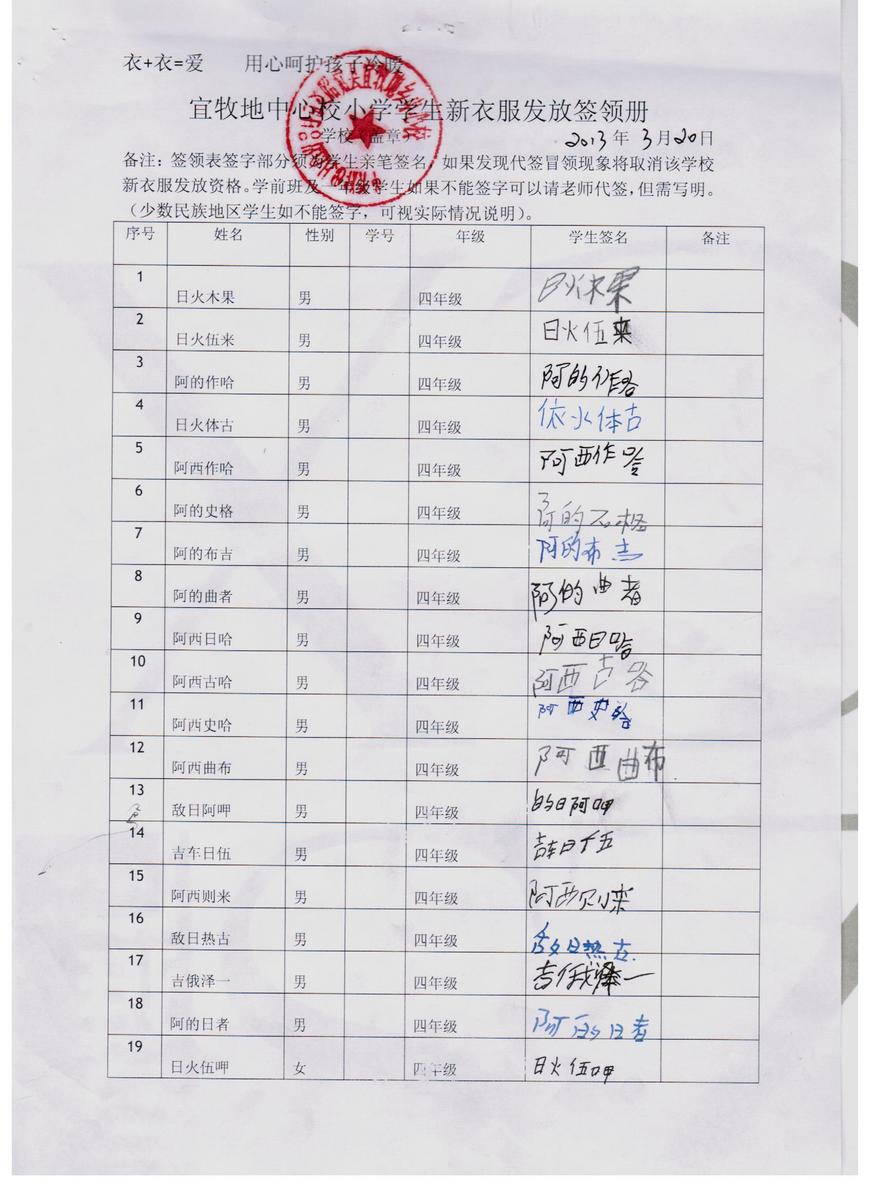 衣+衣=爱 用心呵护孩子冷暖
宜牧地中心校小学学生新衣服发放签领册
学校（盖章） 2013年3月20日
备注：签领表签字部分须为学生亲笔签名，如果发现代签冒领现象将取消该学校
新衣服发放资格。学前班及一年级学生如果不能签字可以请老师代签，但需写明。
（少数民族地区学生如不能签字，可视实际情况说明）。
序号 姓名 性别 学号 年级 学生签名 备注
1 日火木果 男 四年级 日火木果
2 日火伍来 男 四年级 日火伍来
3 阿的作哈 男 四年级 阿的作哈
4 日火体古 男 四年级 依火体古
5 阿西作哈 男 四年级 阿西作哈
6 阿的史格 男 四年级 阿的石格
7 阿的布吉 男 四年级 阿的布吉
8 阿的曲者 男 四年级 阿的曲者
9 阿西日哈 男 四年级 阿西日哈
10 阿西古哈 男 四年级 阿西古
11 阿西史哈 男 四年级 阿西史哈
12 阿西曲布 男 四年级 阿西曲布
13 敌日阿呷 男 四年级 的日阿呷
14 吉车日伍 男 四年级 吉车日
15 阿西则来 男 四年级 阿西则来
16 敌日热古 男 四年级 敌日热古
17 吉俄泽一 男 四年级 吉俄泽一
18 阿的日者 男 四年级 阿的日者
19 日火伍呷 女 四年级 日火伍呷